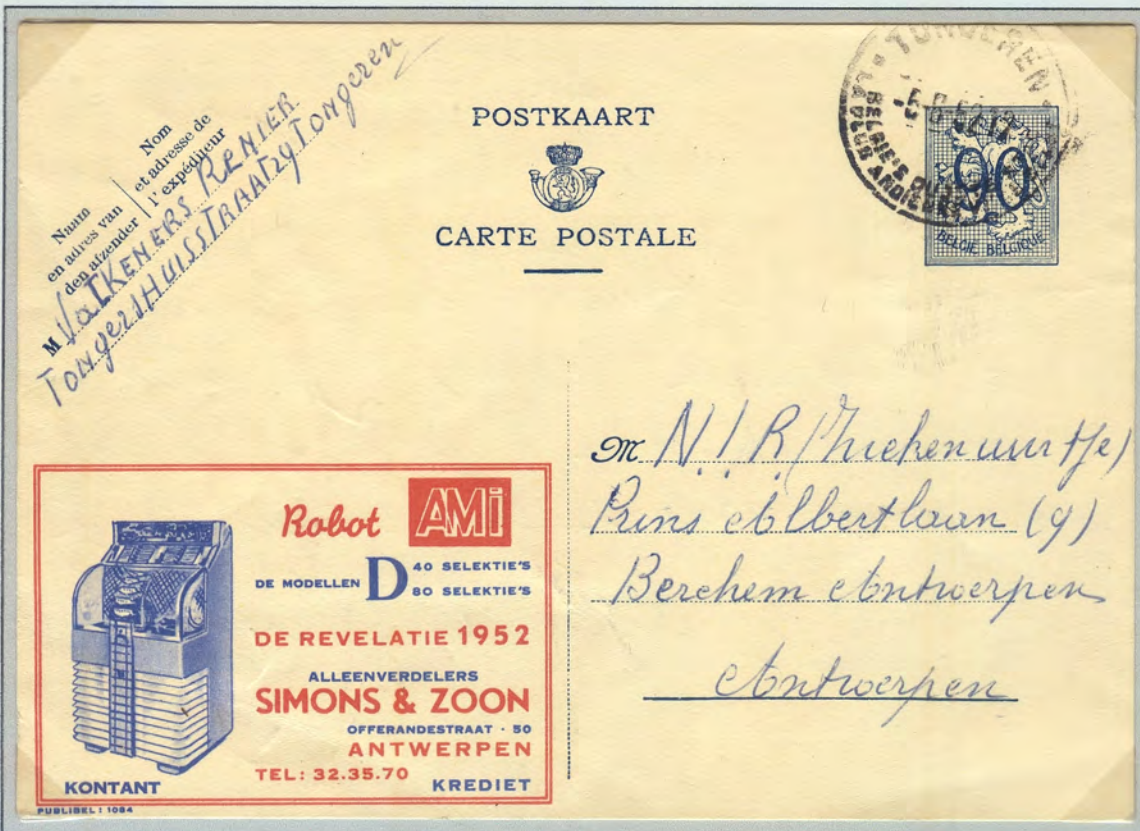 POSTKAART
CARTE POSTALE
Naam
en adres van
den afzender
Nom
et adresse de
l'expéditeur
M VaLKENERS RENIER
TongersHUISSTRAAT Tongeren
TONGEREN
BELGIE'S
LA PLUS
90
BELGIE BELGIQUE
M N.I.R (Ziekenuurtje)
Prins Albertlaan (9)
Berchem Antwerpen
Antwerpen
Robot AMi
DE MODELLEN D 40 SELEKTIE'S
80 SELEKTIE'S
DE REVELATIE 1952
ALLEENVERDELERS
SIMONS & ZOON
OFFERANDESTRAAT · 50
ANTWERPEN
TEL: 32.35.70
KONTANT KREDIET
PUBLIBEL: 1084